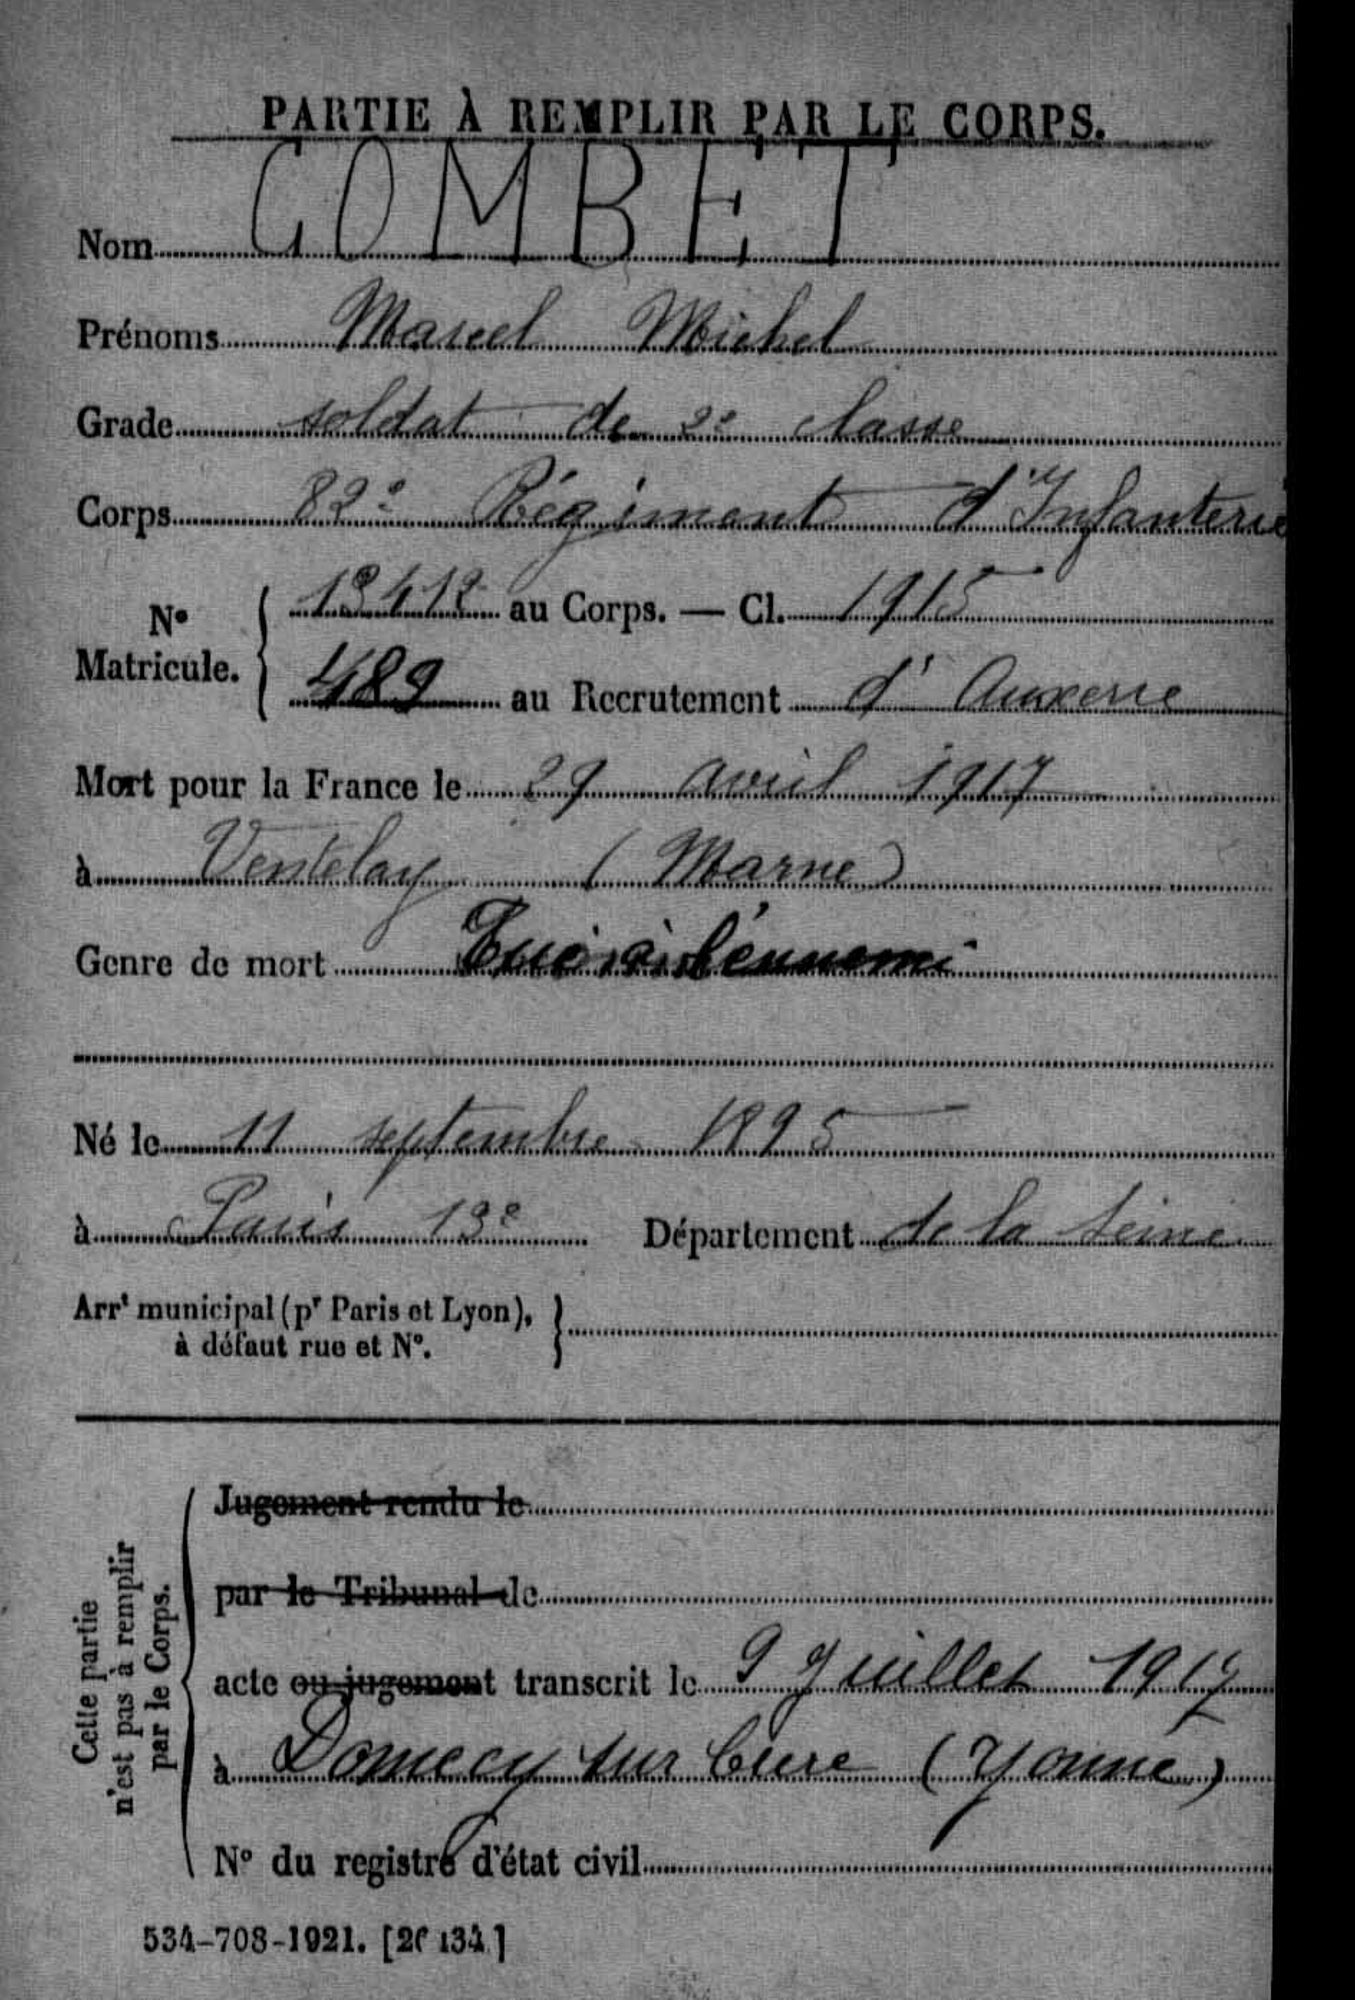 PARTIE À REMPLIR PAR LE CORPS.
Nom COMBET
Prénoms Marcel Michel
Grade soldat de 2e classe
Corps 82e Régiment d'Infanterie
No Matricule. 13412 au Corps. — Cl. 1915
489 au Recrutement d'Auxerre
Mort pour la France le 29 avril 1917
à Ventelay (Marne)
Genre de mort Tué à l'énnemi
Né le 11 septembre 1895
à Paris 13e Département de la Seine
Arrt municipal (pr Paris et Lyon),
à défaut rue et No.
Cette partie
n'est pas à remplir
par le Corps.
Jugement rendu le
par le Tribunal de
acte ou jugement transcrit le 9 Juillet 1917
à Domecy sur Cure (Yonne)
No du registre d'état civil
534-708-1921. [26134]